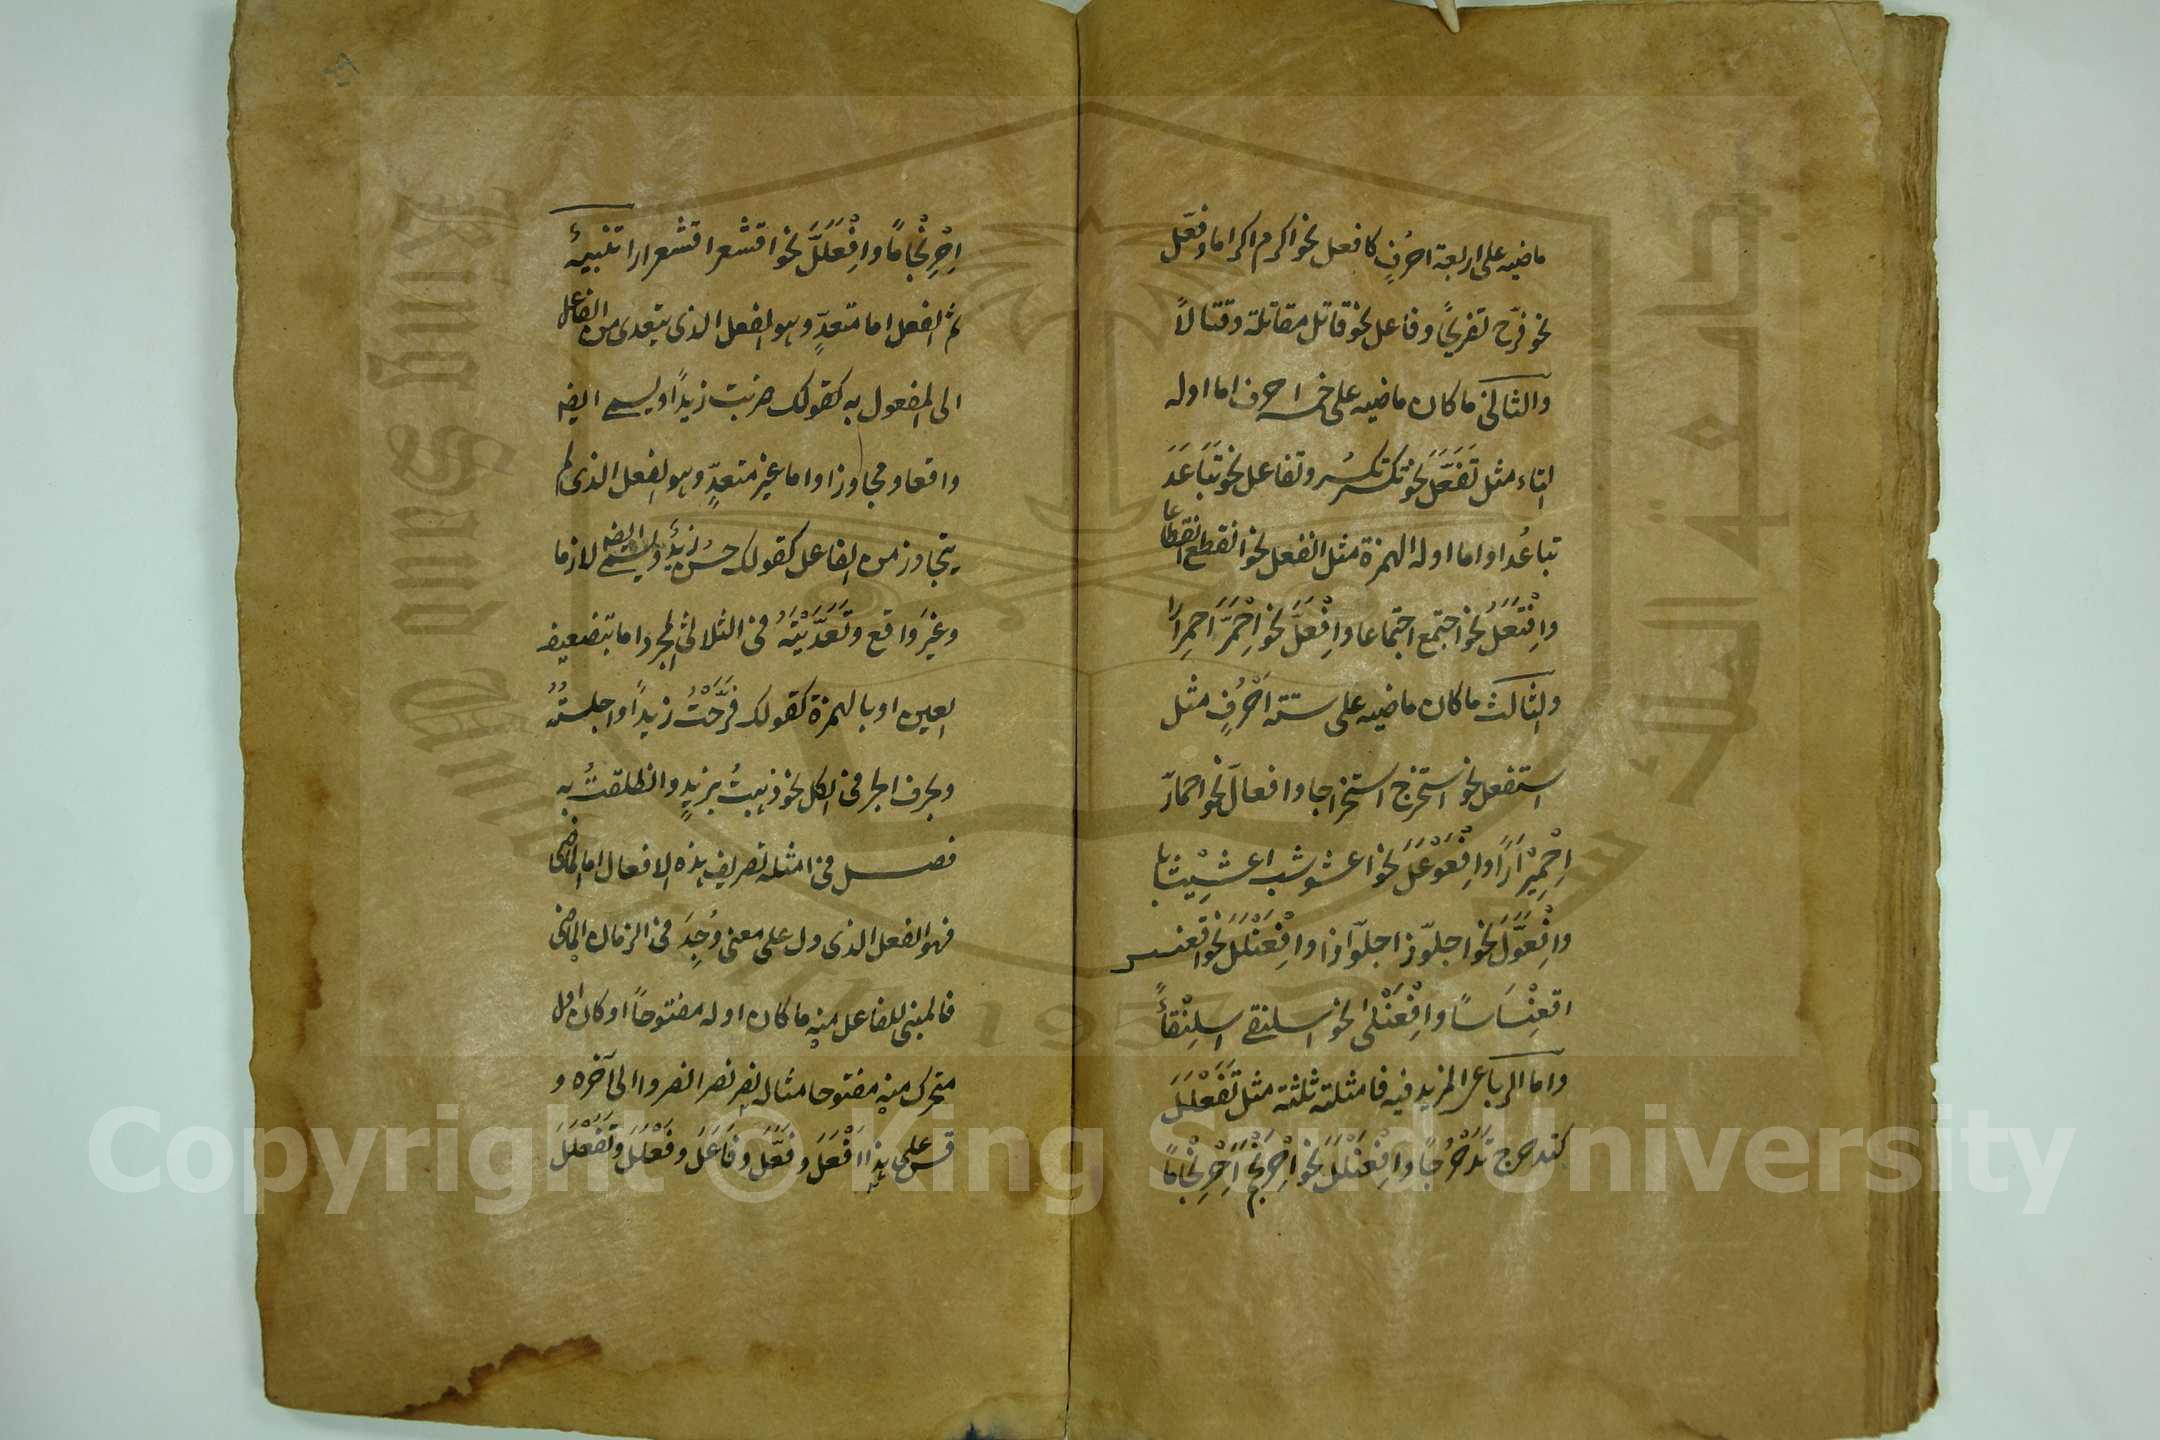 ماضيه على اربعة احرُفٍ كافعل نحو اكرم اكراما وفعّل
نحو فرّح تفريحًا وفاعل نحو قاتل مقاتلة وقتالاً
والثانى ما كان ماضيه على خمسة احرف اما اوله
التاء مثل تَفَعَّلَ نحو تكسّر تكسُّر وتفاعل نحو تَبَاعَدَ
تباعُدا واما اوله الهمزة مثل انفعل نحو انقطع انقطاعا
وافْتَعَلَ نحو اجتمع اجتماعا وافْعَلَّ نحو احْمَرَّ احْمِرَارًا
والثالث ما كان ماضيه على ستة اَحْرُفٍ مثل
استفعل نحو استخرج استخراجا وافعالّ نحو احمارّ
اِحْمِيْرَارًا وافْعَوْعَلَ نحو اعشوشب اعْشِيْشابا
وافْعَوَّلَ نحو اجلوّذ اجلوّاذا وافْعَنْلَلَ نحو اقعنسس
اقعِنْسَاسًا وافْعَنْلى نحو اسلنقى اسلِنْقاءً
واما الرباعى المزيد فيه فامثلته ثلثة مثل تَفَعْلَلَ
كتدحرج تَدَحْرُجًا وافْعَنْلَلَ نحو احْرَنْجَمَ اِحْرِنْجامًا
اِحْرِنْجَامًا وافْعَلَلَّ نحو اقشعر اقشعرارا تنبيهٌ
ثم الفعل اما متعدٍّ وهو الفعل الذى يتعدى من الفاعل
الى المفعول به كقولك ضربت زيدًا ويسمى ايضا
واقعا ومجاوزا واما غير متعدٍّ وهو الفعل الذى لم
يتجاوز من الفاعل كقولك حسُن زيدٌ ويسمى ايضا لازما
وغيرَ واقع وتَعَدَّيْتَهُ فى الثلاثى المجرد اما بتضعيف
العين او بالهمزة كقولك فَرَّحْتُ زيدًا واجلستُهُ
وبحرف الجر فى الكل نحو ذهبتُ بزيدٍ وانطلقتُ به
فصل فى امثلة تصريف هذه الافعال اما الماضى
فهو الفعل الذى دل على معنى وُجِدَ فى الزمان الماضى
فالمبنى للفاعل منه ما كان اوله مفتوحًا او كان اول
متحرك منه مفتوحا مثاله نصر نصرا نصروا الى آخره و
قس على هذا اَفْعَلَ وفَعَّلَ وفَاعَلَ وفَعْلَلَ وتَفَعْلَلَ
King Saud University
جامعة الملك سعود
1957
Copyright © King Saud University